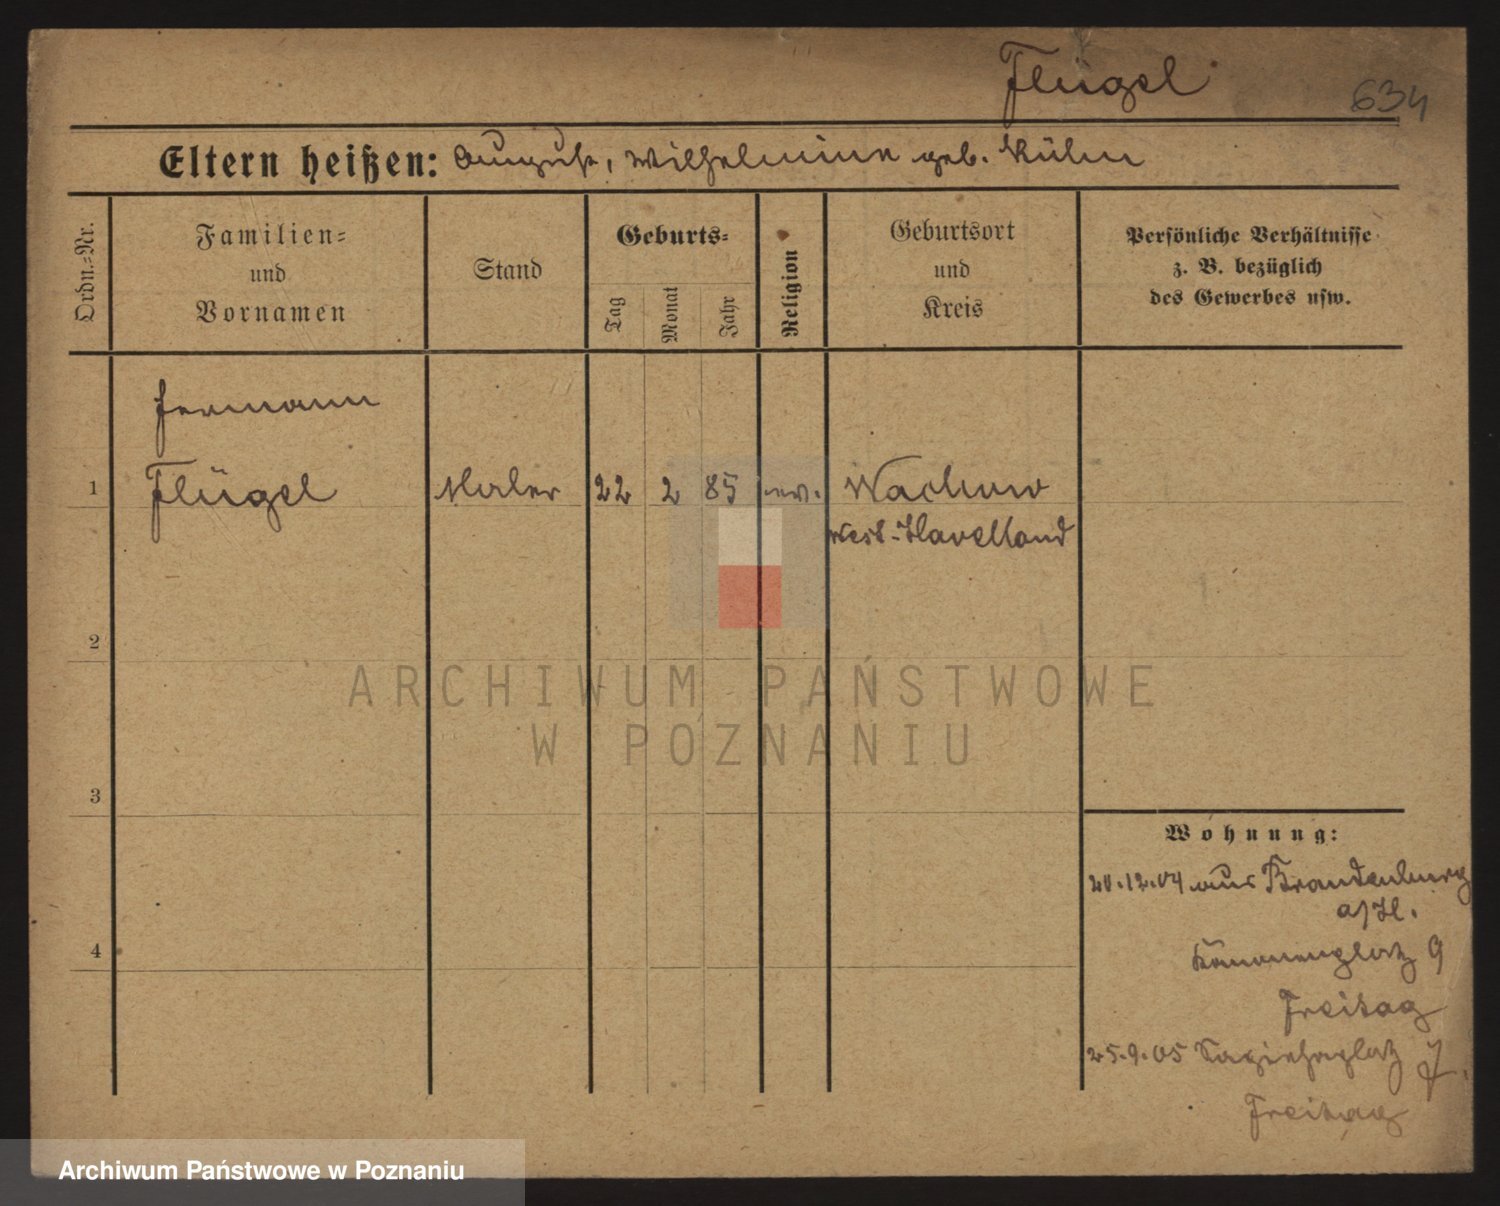 Flügel
634
Eltern heißen: August, Wilhelmine geb. Kühn
Ordn.=Nr.
Familien=
und
Vornamen
Stand
Geburts=
Tag
Monat
Jahr
Religion
Geburtsort
und
Kreis
Persönliche Verhältnisse
z. B. bezüglich
des Gewerbes usw.
Hermann
1 Flügel Maler 22 2 85 ev. Wachow
West-Havelland
2
3
4
Wohnung:
20.12.04 aus Brandenburg
a/H.
Kanonenplatz 9
Freitag
25.9.05 Sapiehaplatz
Freitag
ARCHIWUM PAŃSTWOWE
W POZNANIU
Archiwum Państwowe w Poznaniu